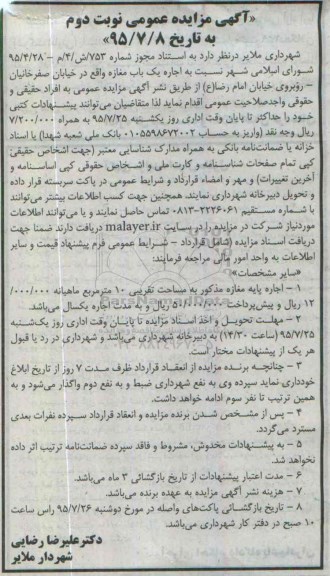 «آگهی مزایده عمومی نوبت دوم
به تاریخ ۹۵/۷/۸»
شهرداری ملایر درنظر دارد به استناد مجوز شماره ۷۵۳/ش/۴/م – ۹۵/۴/۲۸
شورای اسلامی شهر نسبت به اجاره یک باب مغازه واقع در خیابان صفرخانیان
– روبروی خیابان امام رضا(ع) از طریق نشر آگهی مزایده عمومی به افراد حقیقی و
حقوقی واجدصلاحیت عمومی اقدام نماید لذا متقاضیان می‌توانند پیشنهادات کتبی
خود را حداکثر تا پایان وقت اداری روز یکشنبه ۹۵/۷/۲۵ به همراه ۷/۲۰۰/۰۰۰
ریال وجه نقد (واریز به حساب ۰۱۰۵۵۹۸۶۷۲۰۰۲ بانک ملی شعبه شهدا) یا اسناد
خزانه یا ضمانت‌نامه بانکی به همراه مدارک شناسایی معتبر (جهت اشخاص حقیقی
کپی تمام صفحات شناسنامه و کارت ملی و اشخاص حقوقی کپی اساسنامه و
آخرین تغییرات) و مهر و امضاء قرارداد و شرایط عمومی در پاکت سربسته قرار داده
و تحویل دبیرخانه شهرداری نمایند. همچنین جهت کسب اطلاعات بیشتر می‌توانند
با شماره مستقیم ۲۲۲۶۰۶۱-۰۸۱۳ تماس حاصل نمایند و یا می‌توانند اطلاعات
موردنیاز شرکت در مزایده را در سایت malayer.ir دریافت دارند ضمنا جهت
دریافت اسناد مزایده (شامل قرارداد – شرایط عمومی فرم پیشنهاد قیمت و سایر
اطلاعات به واحد امور مالی مراجعه فرمایند:
«سایر مشخصات»:
۱ – اجاره پایه مغازه مذکور به مساحت تقریبی ۱۰ مترمربع ماهیانه ۰۰۰/۰۰۰/
۱۲ ریال و پیش‌پرداخت ۵۰/۰۰۰/۰۰۰ ریال و به مدت اجاره یکسال می‌باشد.
۲ – مهلت تحویل و اخذ اسناد مزایده تا پایان وقت اداری روز یک‌شنبه
۹۵/۷/۲۵ (ساعت ۱۴/۳۰) به دبیرخانه شهرداری می‌باشد و شهرداری در رد یا قبول
هر یک از پیشنهادات مختار است.
۳ – چنانچه برنده مزایده از انعقاد قرارداد ظرف مدت ۷ روز از تاریخ ابلاغ
خودداری نماید سپرده وی به نفع شهرداری ضبط و به نفع دوم واگذار می‌شود و به
همین ترتیب تا نفر سوم ادامه خواهد داشت.
۴ – پس از مشخص شدن برنده مزایده و انعقاد قرارداد سپرده نفرات بعدی
مسترد می‌گردد.
۵ – به پیشنهادات مخدوش، مشروط و فاقد سپرده ضمانت‌نامه ترتیب اثر داده
نخواهد شد.
۶ – مدت اعتبار پیشنهادات از تاریخ بازگشائی ۳ ماه می‌باشد.
۷ – هزینه نشر آگهی مزایده به عهده برنده می‌باشد.
۸ – تاریخ بازگشائی پاکت‌های واصله در مورخ دوشنبه ۹۵/۷/۲۶ راس ساعت
۱۰ صبح در دفتر کار شهرداری می‌باشد.
دکترعلیرضا رضایی
شهردار ملایر